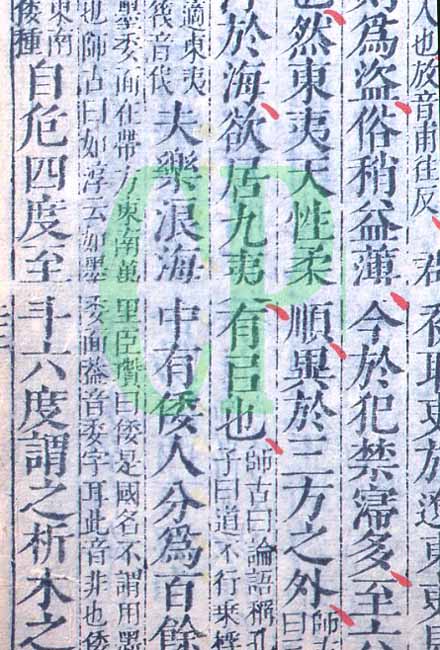 人也放音甫往反
則為盜俗稍益薄今於犯禁多至六
然東夷天性柔順異於三方之外師古
於海欲居九夷有㠯也師古曰論語稱孔
子曰道不行乗桴
東夷
筏音伐夫樂浪海中有倭人分為百餘
墨委面在帶方東南萬里臣瓚曰倭是國名不謂用墨
也師古曰如淳云如墨委面葢音委字耳此音非也倭
東南
倭種自危四度至斗六度謂之析木之